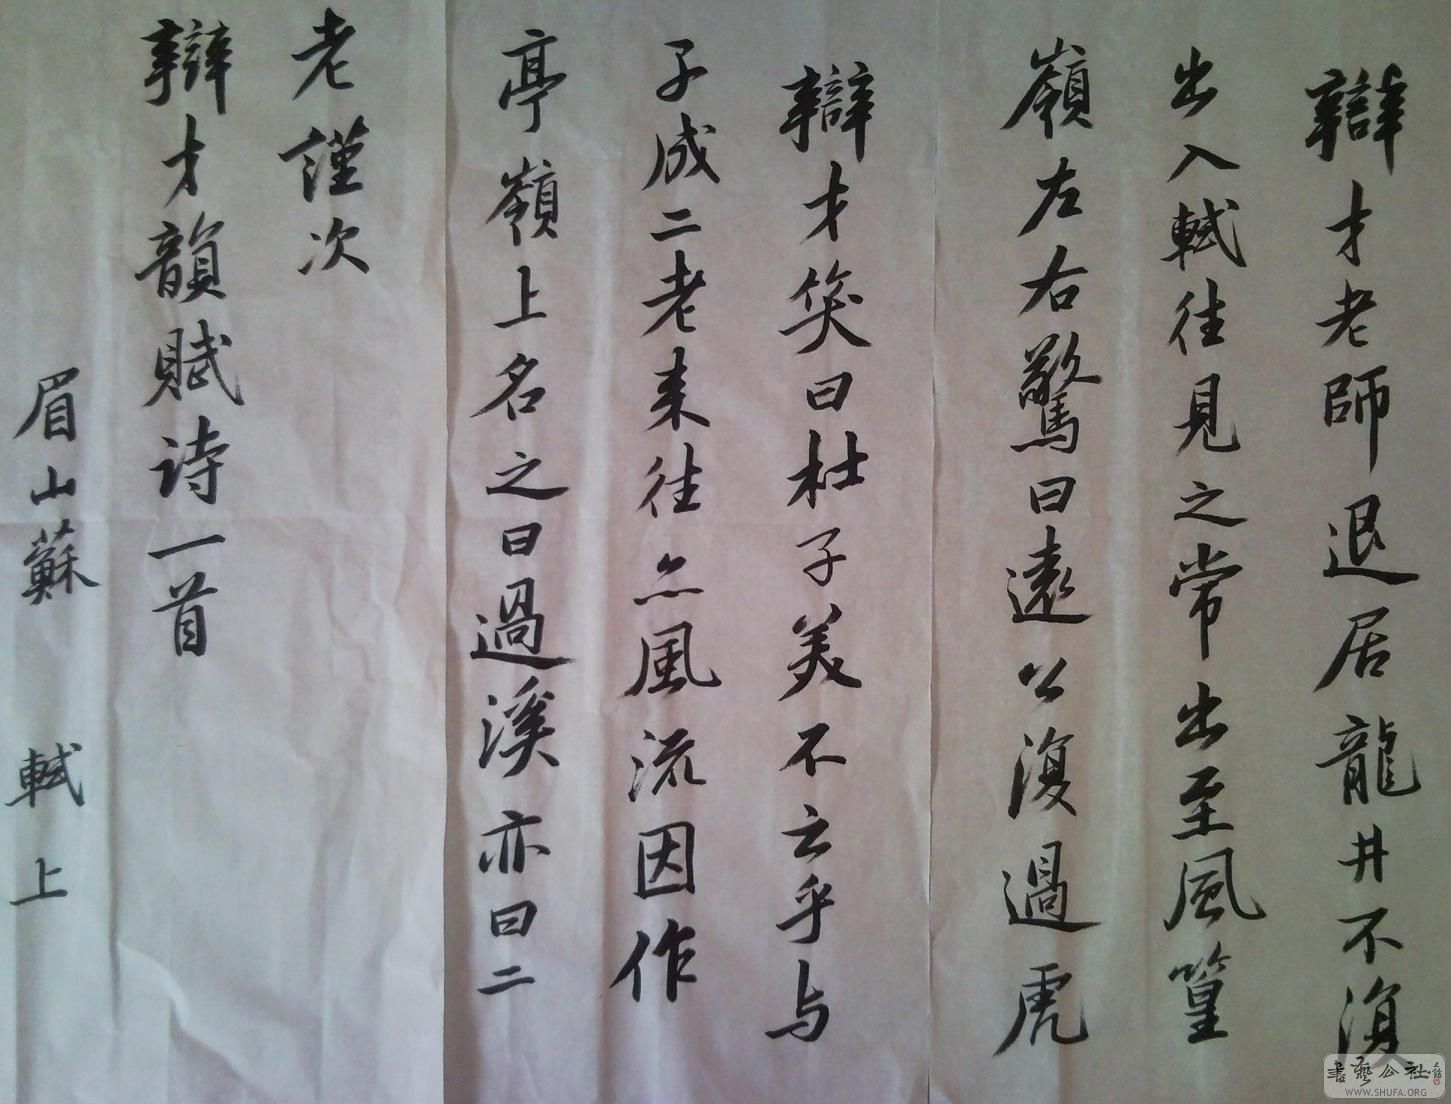 辯才老師退居龍井不復
出入軾往見之常出至風篁
嶺左右驚曰遠公復過虎
辯才笑曰杜子美不云乎与
子成二老来往亦風流因作
亭嶺上名之曰過溪亦曰二
老謹次
辯才韻賦诗一首
眉山蘇 軾上
書藝公社
WWW.SHUFA.ORG